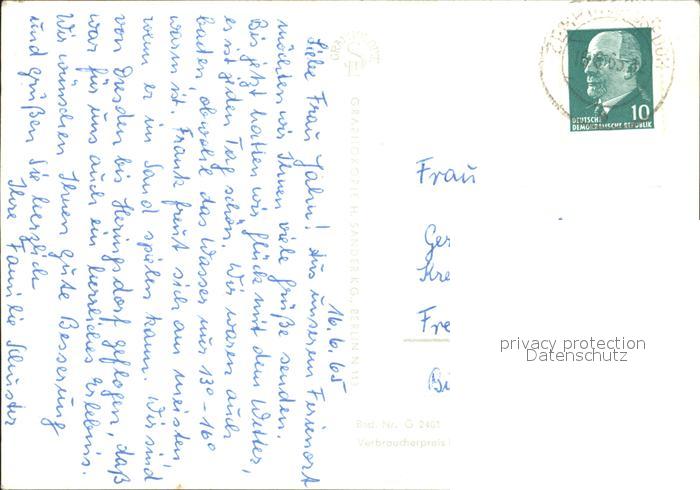 16.6.65
Liebe Frau Jahn! Aus unserem Ferienort
möchten wir Ihnen viele Grüße senden.
Bis jetzt hatten wir Glück mit dem Wetter,
es ist jeden Tag schön. Wir waren auch
baden, obwohl das Wasser nur 13°-16°
warm ist. Frank freut sich am meisten,
wenn er im Sand spielen kann. Wir sind
von Dresden bis Heringsdorf geflogen, daß
war für uns auch ein herrliches Erlebnis.
Wir wünschen Ihnen gute Besserung
und grüßen Sie herzlich
Ihre Familie Schuster
GRAPHOKOPIE H. SANDER KG., BERLIN N 113
Best. Nr. G 2401
Verbraucherpreis
10
DEUTSCHE
DEMOKRATISCHE REPUBLIK
Frau
Ger
Kre
Fre
Bi
privacy protection
Datenschutz